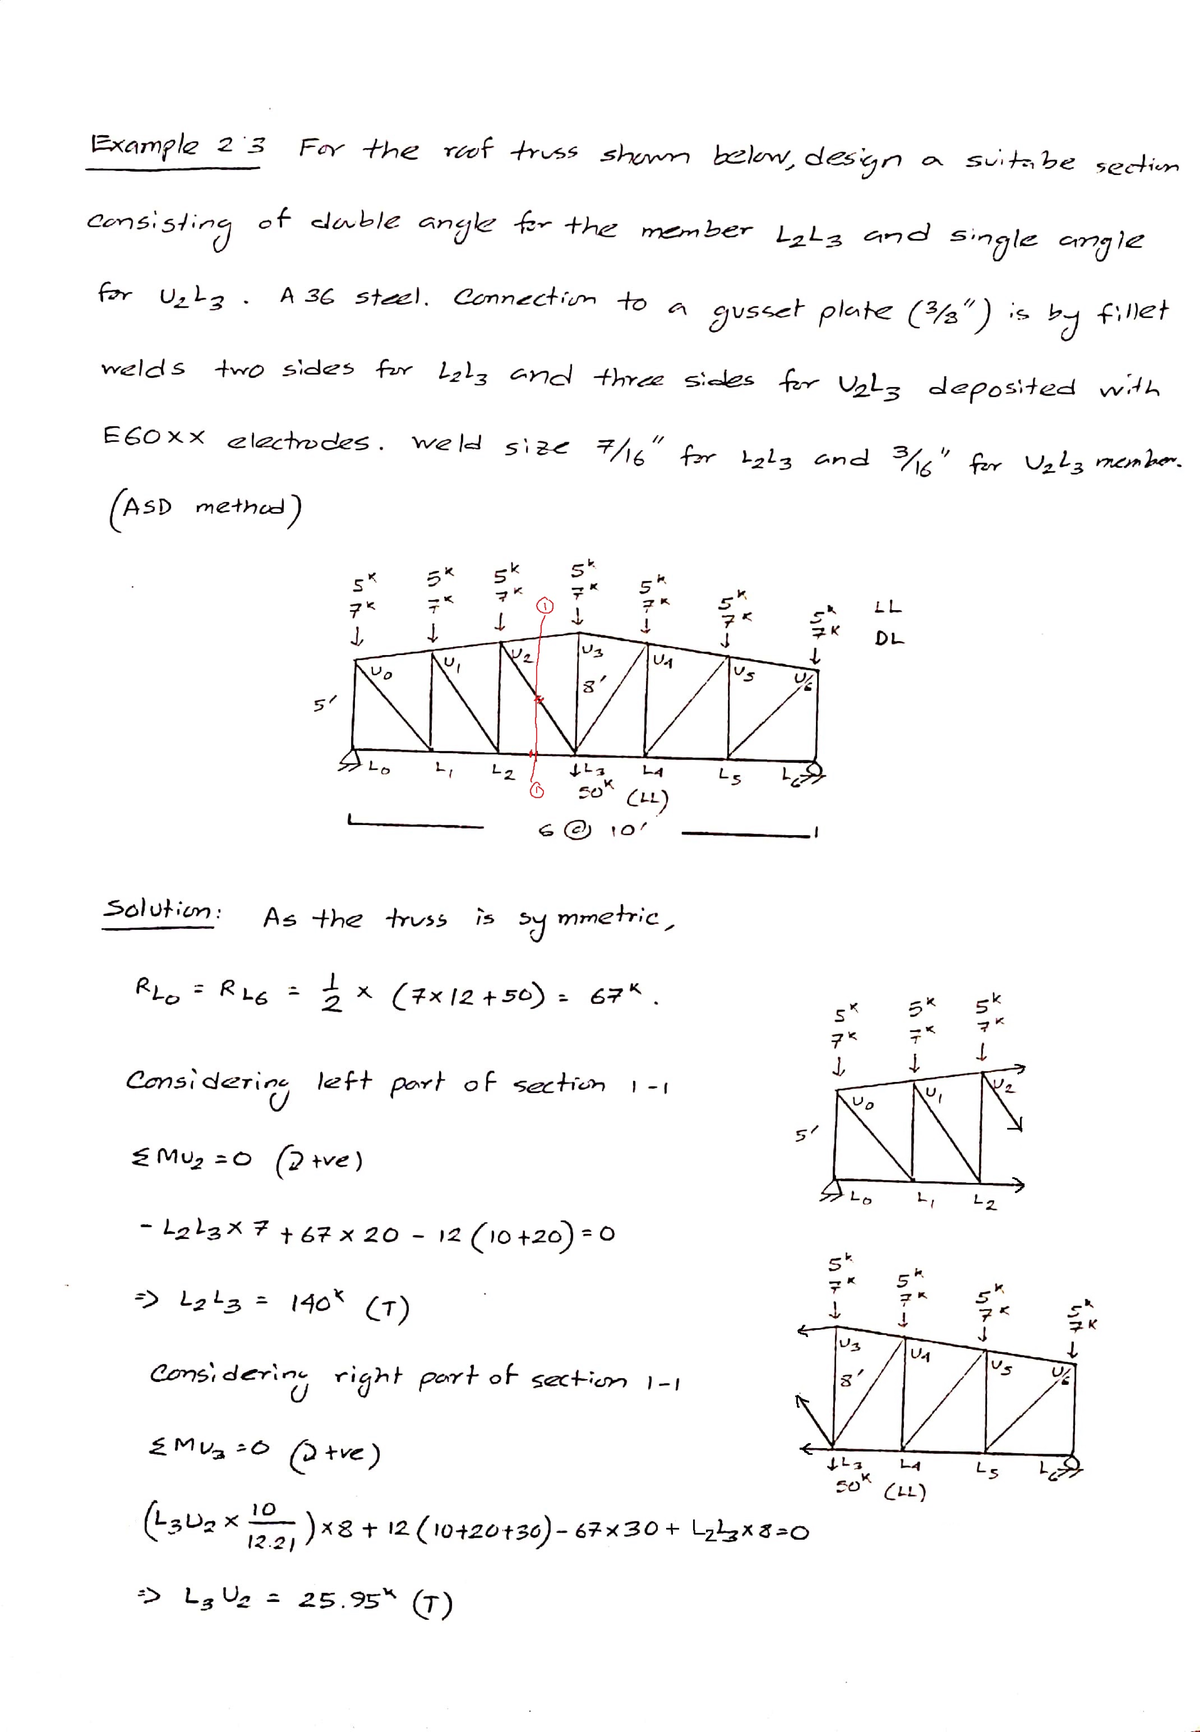 Example 2.3 For the roof truss shown below, design a suitabe section
consisting of double angle for the member L2L3 and single angle
for U2L3. A 36 steel. Connection to a gusset plate (3/8") is by fillet
welds two sides for L2L3 and three sides for U2L3 deposited with
E60xx electrodes. weld size 7/16" for L2L3 and 3/16" for U2L3 member.
(ASD method)
5K 5K 5K 5K 5K 5K 5K LL
7K 7K 7K 7K 7K 7K 7K DL
1
U0 U1 U2 U3 U4 U5 U6
5' 8'
L0 L1 L2 L3 L4 L5 L6
1 50K (LL)
6 @ 10'
Solution: As the truss is symmetric,
RL0 = RL6 = 1/2 × (7×12+50) = 67K.
Considering left part of section 1-1
ΣMU2 = 0 (↻ +ve)
- L2L3 × 7 + 67 × 20 - 12 (10+20) = 0
=> L2L3 = 140K (T)
5K 5K 5K
7K 7K 7K
U0 U1 U2
5'
L0 L1 L2
Considering right part of section 1-1
ΣMU3 = 0 (↻ +ve)
(L3U2 × 10/12.21) × 8 + 12 (10+20+30) - 67×30 + L2L3×8=0
=> L3U2 = 25.95K (T)
5K 5K 5K 5K
7K 7K 7K 7K
U3 U4 U5 U6
8'
L3 L4 L5 L6
50K (LL)